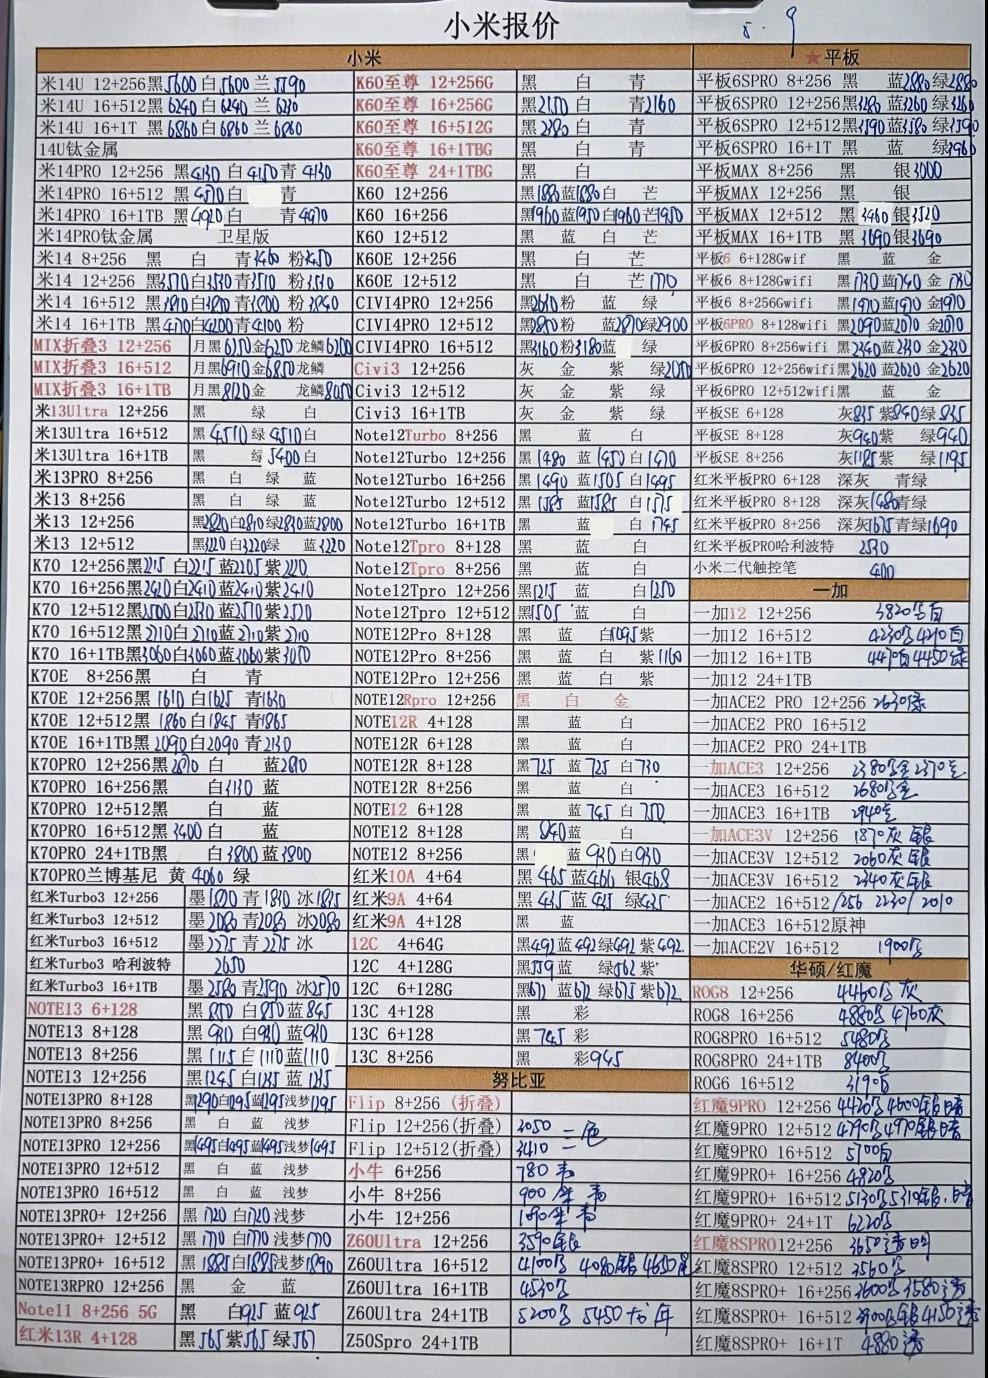 小米报价
5.9
小米
米14U 12+256黑5600白5600兰5590
米14U 16+512黑6240白6240兰6230
米14U 16+1T 黑6860白6860兰6860
14U钛金属
米14PRO 12+256 黑4130白4150青4130
米14PRO 16+512 黑4570白 青
米14PRO 16+1TB 黑4920白 青4970
米14PRO钛金属 卫星版
米14 8+256 黑 白 青3460 粉3450
米14 12+256 黑3570白3530青3510 粉3530
米14 16+512 黑3810白3800青3800 粉3840
米14 16+1TB 黑4170白4200青4100 粉
MIX折叠3 12+256 月黑6250金6250龙鳞6200
MIX折叠3 16+512 月黑6910金6850龙鳞
MIX折叠3 16+1TB 月黑8120金 龙鳞8050
米13Ultra 12+256 黑 绿 白
米13Ultra 16+512 黑4510绿4510白
米13Ultra 16+1TB 黑 绿5400白
米13PRO 8+256 黑 白 绿 蓝
米13 8+256 黑 白 绿 蓝
米13 12+256 黑2820白2810绿2830蓝2800
米13 12+512 黑3220白3220绿 蓝3220
K70 12+256黑2215 白2215蓝2205紫2220
K70 16+256黑2420白2410蓝2410紫2410
K70 12+512黑2500白2530蓝2510紫2520
K70 16+512黑2710白2710蓝2710紫2710
K70 16+1TB黑3060白3060蓝3060紫3070
K70E 8+256黑 白 青
K70E 12+256黑1610白1625 青1630
K70E 12+512黑1860白1845 青1865
K70E 16+1TB黑2090白2090 青2130
K70PRO 12+256黑2870 白 蓝2810
K70PRO 16+256黑 白3130 蓝
K70PRO 12+512黑 白 蓝
K70PRO 16+512黑3400白 蓝
K70PRO 24+1TB黑 白3800蓝3800
K70PRO兰博基尼 黄4060 绿
红米Turbo3 12+256 墨1820青1810冰1815
红米Turbo3 12+512 墨2080青2083冰2080
红米Turbo3 16+512 墨2275青2275冰
红米Turbo3 哈利波特 2650
红米Turbo3 16+1TB 墨2580青2590冰2570
NOTE13 6+128 黑850白850蓝845
NOTE13 8+128 黑930白930蓝930
NOTE13 8+256 黑1115白1110蓝1110
NOTE13 12+256 黑1245白1235蓝1235
NOTE13PRO 8+128 黑1290白1295蓝1295浅梦1295
NOTE13PRO 8+256 黑 白 蓝 浅梦
NOTE13PRO 12+256 黑1495白1495蓝1495浅梦1495
NOTE13PRO 12+512 黑 白 蓝 浅梦
NOTE13PRO 16+512 黑 白 蓝 浅梦
NOTE13PRO+ 12+256 黑1720白1720浅梦
NOTE13PRO+ 12+512 黑1770白1770浅梦1770
NOTE13PRO+ 16+512 黑1885白1885浅梦1890
NOTE13RPRO 12+256 黑 金 蓝
Note11 8+256 5G 黑 白925蓝925
红米13R 4+128 黑565紫565绿567
K60至尊 12+256G 黑 白 青
K60至尊 16+256G 黑2150白 青2160
K60至尊 16+512G 黑2380白 青
K60至尊 16+1TBG 黑 白 青
K60至尊 24+1TBG 黑 白
K60 12+256 黑1880蓝1880白 芒
K60 16+256 黑1960蓝1950白1960芒1950
K60 12+512 黑 蓝 白 芒
K60E 12+256 黑 白 芒
K60E 12+512 黑 白 芒1770
CIVI4PRO 12+256 黑2630粉 蓝 绿
CIVI4PRO 12+512 黑2850粉 蓝2870绿2900
CIVI4PRO 16+512 黑3160粉3180蓝 绿
Civi3 12+256 灰 金 紫 绿2050
Civi3 12+512 灰 金 紫 绿
Civi3 16+1TB 灰 金 紫 绿
Note12Turbo 8+256 黑 蓝 白
Note12Turbo 12+256 黑1480 蓝1450白1470
Note12Turbo 16+256 黑1490 蓝1505白1495
Note12Turbo 12+512 黑1585 蓝1585白1575
Note12Turbo 16+1TB 黑 白1745
Note12Tpro 8+128 黑 蓝 白
Note12Tpro 8+256 黑 蓝 白
Note12Tpro 12+256 黑1215 蓝 白1250
Note12Tpro 12+512 黑1505 蓝 白
NOTE12Pro 8+128 黑 蓝 白1095紫
NOTE12Pro 8+256 黑 蓝 白 紫1160
NOTE12Pro 12+256 黑 蓝 白 紫
NOTE12Rpro 12+256 黑 白 金
NOTE12R 4+128 黑 蓝 白
NOTE12R 6+128 黑 蓝 白
NOTE12R 8+128 黑725 蓝725白730
NOTE12R 8+256 黑 蓝 白
NOTE12 6+128 黑 蓝745白750
NOTE12 8+128 黑840蓝 白
NOTE12 8+256 黑 蓝930白930
红米10A 4+64 黑465蓝466 银468
红米9A 4+64 黑435蓝435 绿435
红米9A 4+128 黑 蓝
12C 4+64G 黑492蓝492绿492紫492
12C 4+128G 黑559蓝 绿562紫
12C 6+128G 黑672蓝672绿675紫672
13C 4+128 黑 彩
13C 6+128 黑745彩
13C 8+256 黑 彩945
努比亚
Flip 8+256 (折叠)
Flip 12+256(折叠) 3050 三色
Flip 12+512(折叠) 3410
小牛 6+256 780
小牛 8+256 900
小牛 12+256 1090
Z60Ultra 12+256 3590银
Z60Ultra 16+512 4100 4080银 4650
Z60Ultra 16+1TB 4530
Z60Ultra 24+1TB 5200 5450
Z50Spro 24+1TB
★平板
平板6SPRO 8+256 黑 蓝2880绿2880
平板6SPRO 12+256黑3280蓝3260绿3260
平板6SPRO 12+512黑3590蓝3580绿3590
平板6SPRO 16+1T 黑 蓝 绿3960
平板MAX 8+256 黑 银3000
平板MAX 12+256 黑 银
平板MAX 12+512 黑3460银3520
平板MAX 16+1TB 黑3690银3690
平板6 6+128Gwif 黑 蓝 金
平板6 8+128Gwifi 黑1730蓝1740金1730
平板6 8+256Gwifi 黑1970蓝1970金1970
平板6PRO 8+128wifi 黑2090蓝2070 金2070
平板6PRO 8+256wifi 黑2340蓝2330 金2330
平板6PRO 12+256wifi黑2620蓝2620 金2620
平板6PRO 12+512wifi黑 蓝 金
平板SE 6+128 灰835紫840绿835
平板SE 8+128 灰940紫 绿940
平板SE 8+256 灰1185紫 绿1195
红米平板PRO 6+128 深灰 青绿
红米平板PRO 8+128 深灰1480青绿
红米平板PRO 8+256 深灰1675青绿1690
红米平板PRO哈利波特 2530
小米二代触控笔 400
一加
一加12 12+256 3820 白
一加12 16+512 4230 4210白
一加12 16+1TB 4470白4450绿
一加12 24+1TB
一加ACE2 PRO 12+256 2630绿
一加ACE2 PRO 16+512
一加ACE2 PRO 24+1TB
一加ACE3 12+256 2380 2370
一加ACE3 16+512 2680
一加ACE3 16+1TB 2940
一加ACE3V 12+256 1870灰 银
一加ACE3V 12+512 2060灰 银
一加ACE3V 16+512 2340灰 银
一加ACE2 16+512/256 2230/2010
一加ACE3 16+512原神
一加ACE2V 16+512 1900
华硕/红魔
ROG8 12+256 4460 灰
ROG8 16+256 4880 4760灰
ROG8PRO 16+512 5480
ROG8PRO 24+1TB 8400
ROG6 16+512 3190白
红魔9PRO 12+256 4420 4600银
红魔9PRO 12+512 4790 4970银
红魔9PRO 16+512 5700白
红魔9PRO+ 16+256 4820
红魔9PRO+ 16+512 5130 5310银
红魔9PRO+ 24+1T 6220
红魔8SPRO12+256 3650透
红魔8SPRO 12+512 3560
红魔8SPRO+ 16+256 3600 3580透
红魔8SPRO+ 16+512 3900 银4150透
红魔8SPRO+ 16+1T 4880透